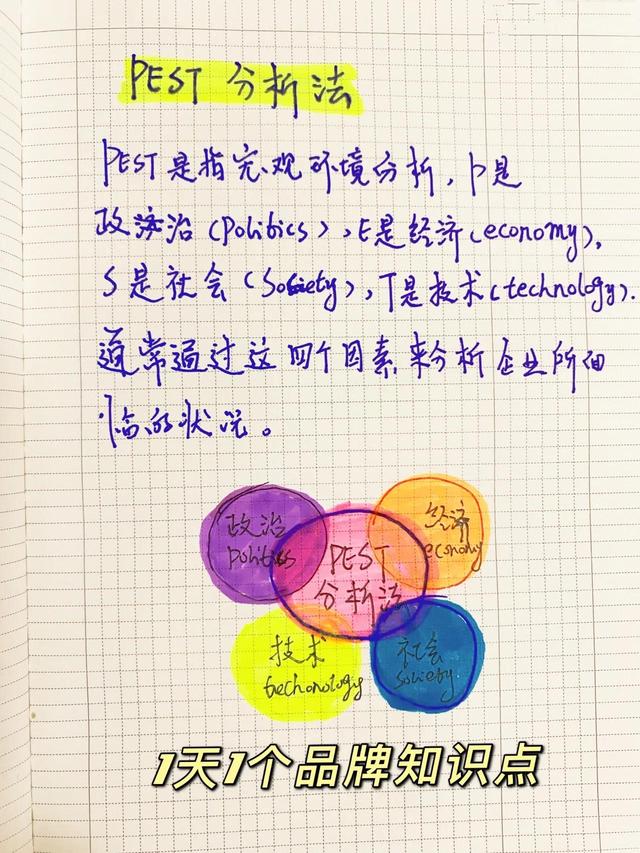 PEST 分析法
PEST是指宏观环境分析，P是
政治（politics），E是经济（economy），
S是社会（Society），T是技术（technology）.
通常通过这四个因素来分析企业所面
临的状况。
政治
politics
经济
economy
PEST
分析法
技术
techonology
社会
society
1天1个品牌知识点